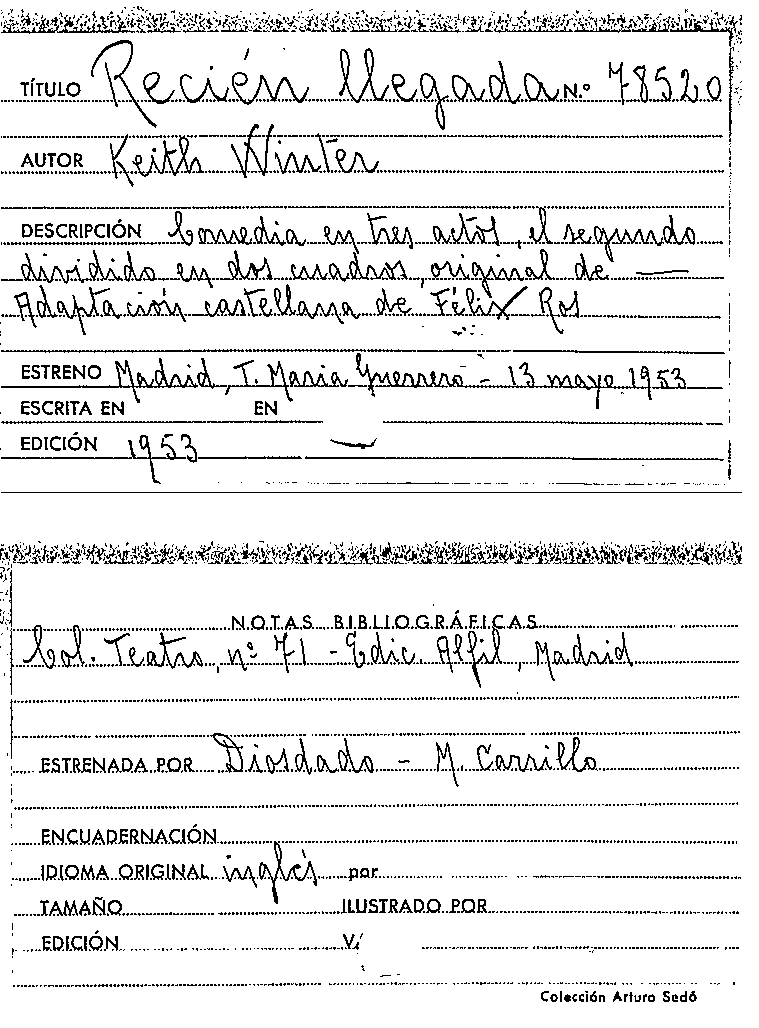 TÍTULO Recién llegada N.º 78520
AUTOR Keith Winter
DESCRIPCIÓN Comedia en tres actos, el segundo
dividido en dos cuadros, original de —
Adaptación castellana de Félix Ros
ESTRENO Madrid, T. Maria Guerrero - 13 mayo 1953
ESCRITA EN EN
EDICIÓN 1953
NOTAS BIBLIOGRÁFICAS
Col. Teatro, nº 71 - Edic. Alfil, Madrid
ESTRENADA POR Diosdado - M. Carrillo
ENCUADERNACIÓN
IDIOMA ORIGINAL inglés por
TAMAÑO ILUSTRADO POR
EDICIÓN V/
Colección Arturo Sedó